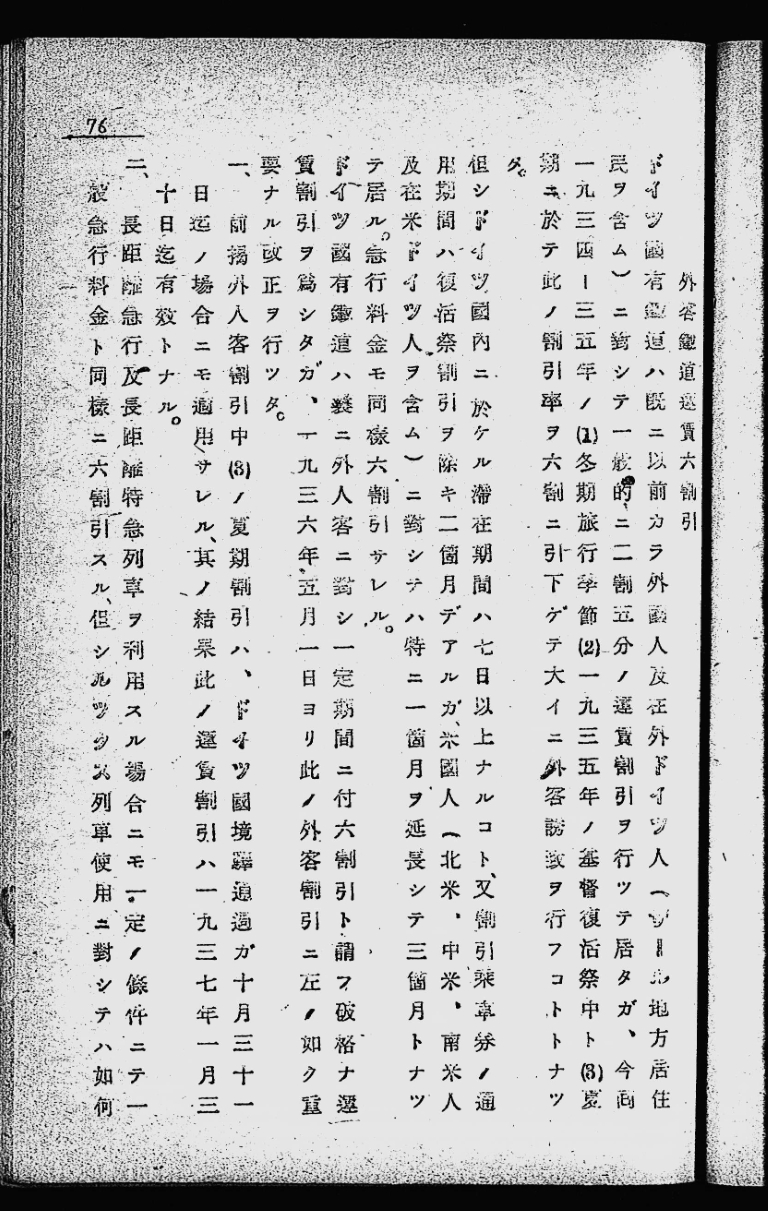 76
外客鐵道運賃六割引
ドイツ國有鐵道ハ既ニ以前カラ外國人及在外ドイツ人（ザール地方居住
民ヲ含ム）ニ對シテ一般的ニ二割五分ノ運賃割引ヲ行ツテ居タガ、今囘
一九三四ー三五年ノ(1)冬期旅行季節(2)一九三五年ノ基督復活祭中ト(3)夏
期ニ於テ此ノ割引率ヲ六割ニ引下ゲテ大イニ外客誘致ヲ行フコトトナツ
タ。
但シドイツ國內ニ於ケル滯在期間ハ七日以上ナルコト、又割引乘車券ノ通
用期間ハ復活祭割引ヲ除キ二箇月デアルガ、米國人（北米、中米、南米人
及在米ドイツ人ヲ含ム）ニ對シテハ特ニ一箇月ヲ延長シテ三箇月トナツ
テ居ル。急行料金モ同樣六割引サレル。
ドイツ國有鐵道ハ曩ニ外人客ニ對シ一定期間ニ付六割引ト謂フ破格ナ運
賃割引ヲ爲シタガ、一九三六年五月一日ヨリ此ノ外客割引ニ左ノ如ク重
要ナル改正ヲ行ツタ。
一、前揭外人客割引中(3)ノ夏期割引ハ、ドイツ國境驛通過ガ十月三十一
日迄ノ場合ニモ適用サレル、其ノ結果此ノ運賃割引ハ一九三七年一月三
十日迄有效トナル。
二、長距離急行及長距離特急列車ヲ利用スル場合ニモ一定ノ條件ニテ一
般急行料金ト同樣ニ六割引スル、但シルツクス列車使用ニ對シテハ如何